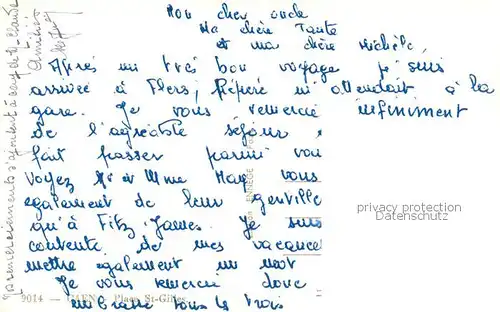 Mon cher oncle
Ma chère Tante
et ma chère Michèle,
Après un très bon voyage je suis
arrivée à Flers, Pépère m'attendait à la
gare. Je vous remercie infiniment
de l'agréable séjour
fait passer parmi vou
voyez Mr et Mme May vous
egalement de leur gentille
qu'à Fitz-James. Je suis
contente de mes vacance
mettre également un mot
Je vous remercie donc
embrasse tous les trois
remerciements s'ajoutent à ceux de Claude
Amitiés
9014 - CAEN - Place St-Gilles
privacy protection
Datenschutz